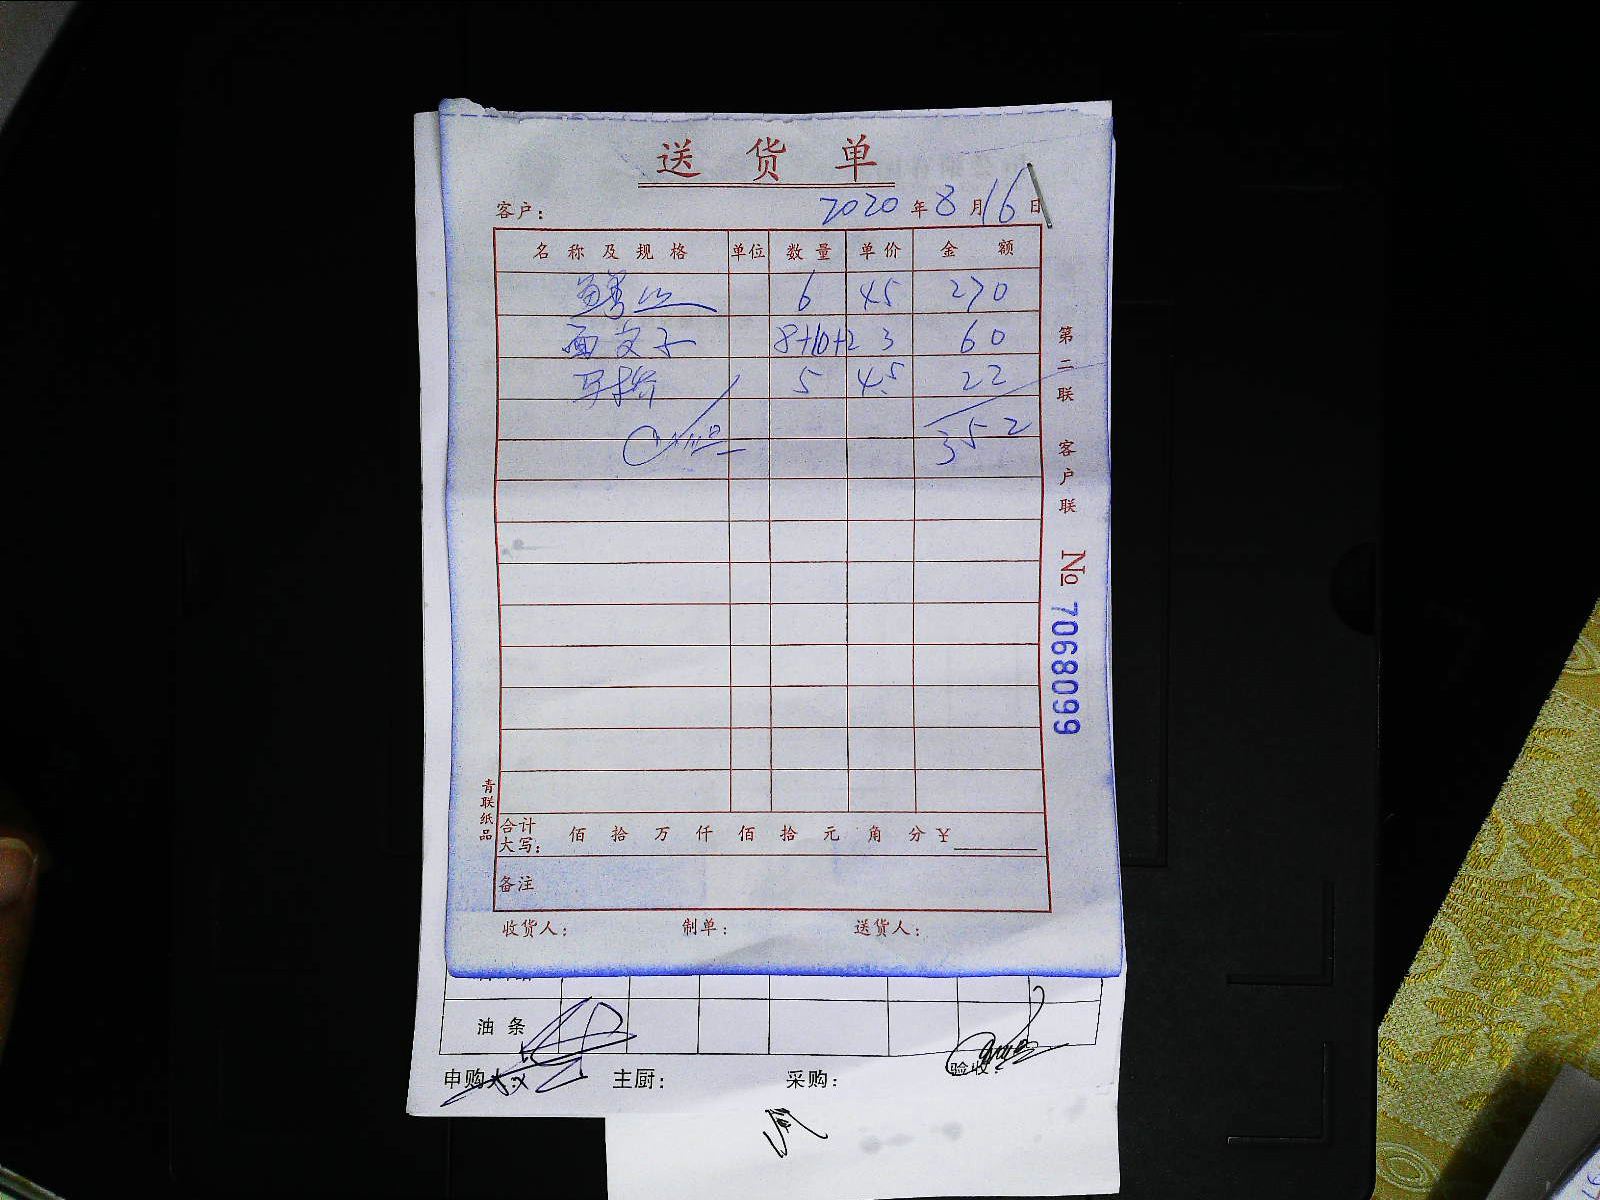 送货单
客户： 2020年8月16日
名称及规格 单位 数量 单价 金额
6 45 270
面 子 8+10+2 3 60
5 4.5 22
352
合计大写： 佰 拾 万 仟 佰 拾 元 角 分 ¥
备注
收货人： 制单： 送货人：
第二联 客户联
№ 7068099
青联纸品
油条
申购人： 主厨： 采购： 验收：